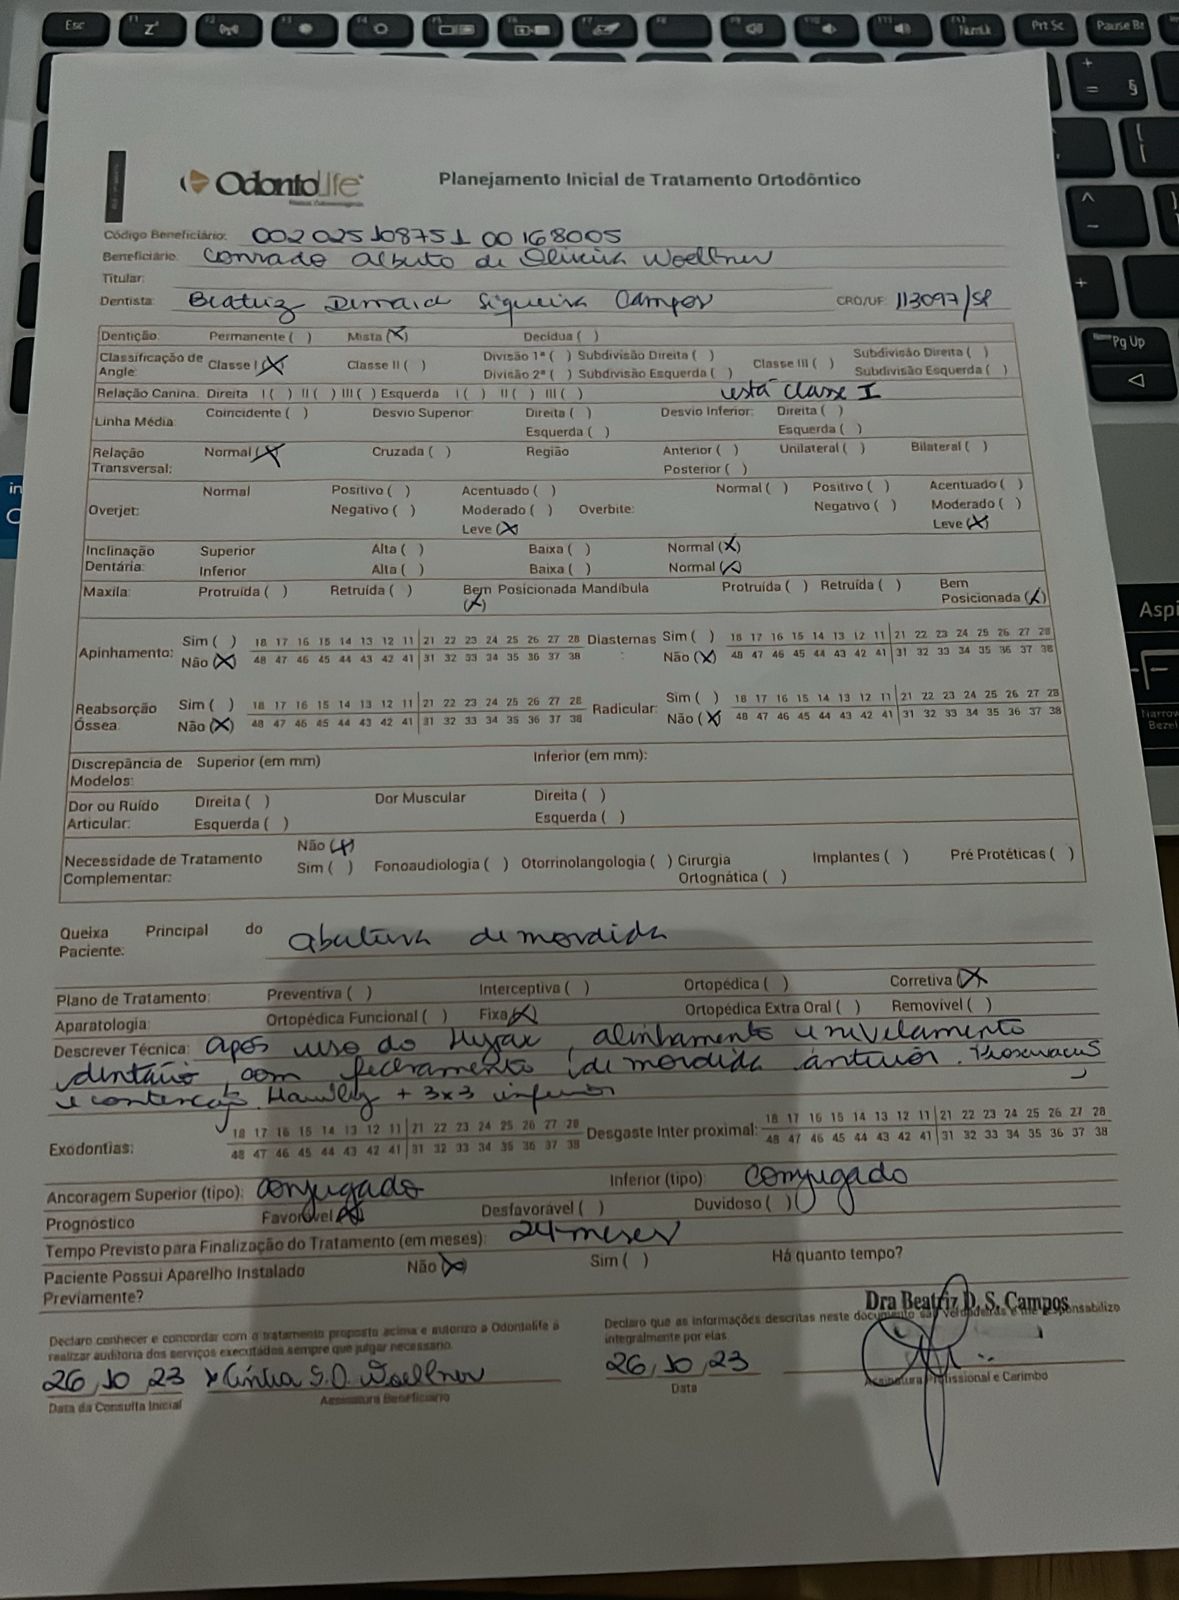 Esc F1 F2 F3 F4 F5 F6 F7 F8 F9 F10 F11 F12 NumLk Prt Sc Pause Br
Pg Up
Aspi
Narrow
Bezel
OdontoLife
Planejamento Inicial de Tratamento Ortodôntico
Código Beneficiário: 002025108751 00168005
Beneficiário: Conrado Alberto de Oliveira Woellner
Titular:
Dentista: Beatriz Siqueira Campos CRO/UF: 113097/SP
Dentição: Permanente ( ) Mista (X) Decídua ( )
Classificação de Angle: Classe I (X) Classe II ( ) Divisão 1ª ( ) Subdivisão Direita ( ) Classe III ( ) Subdivisão Direita ( )
Divisão 2ª ( ) Subdivisão Esquerda ( ) Subdivisão Esquerda ( )
Relação Canina: Direita I ( ) II ( ) III ( ) Esquerda I ( ) II ( ) III ( ) está Classe I
Linha Média: Coincidente ( ) Desvio Superior: Direita ( ) Desvio Inferior: Direita ( )
Esquerda ( ) Esquerda ( )
Relação Transversal: Normal (X) Cruzada ( ) Região Anterior ( ) Unilateral ( ) Bilateral ( )
Posterior ( )
Normal Positivo ( ) Acentuado ( ) Normal ( ) Positivo ( ) Acentuado ( )
Overjet: Negativo ( ) Moderado ( ) Overbite: Negativo ( ) Moderado ( )
Leve (X) Leve (X)
Inclinação Superior Alta ( ) Baixa ( ) Normal (X)
Dentária: Inferior Alta ( ) Baixa ( ) Normal (X)
Maxila: Protruída ( ) Retruída ( ) Bem Posicionada (X) Mandíbula Protruída ( ) Retruída ( ) Bem Posicionada (X)
Apinhamento: Sim ( ) 18 17 16 15 14 13 12 11 21 22 23 24 25 26 27 28 Diastemas: Sim ( ) 18 17 16 15 14 13 12 11 21 22 23 24 25 26 27 28
Não (X) 48 47 46 45 44 43 42 41 31 32 33 34 35 36 37 38 Não (X) 48 47 46 45 44 43 42 41 31 32 33 34 35 36 37 38
Reabsorção Óssea: Sim ( ) 18 17 16 15 14 13 12 11 21 22 23 24 25 26 27 28 Radicular: Sim ( ) 18 17 16 15 14 13 12 11 21 22 23 24 25 26 27 28
Não (X) 48 47 46 45 44 43 42 41 31 32 33 34 35 36 37 38 Não (X) 48 47 46 45 44 43 42 41 31 32 33 34 35 36 37 38
Discrepância de Modelos: Superior (em mm) Inferior (em mm):
Dor ou Ruído Direita ( ) Dor Muscular Direita ( )
Articular: Esquerda ( ) Esquerda ( )
Necessidade de Tratamento Não (X)
Complementar: Sim ( ) Fonoaudiologia ( ) Otorrinolangologia ( ) Cirurgia Ortognática ( ) Implantes ( ) Pré Protéticas ( )
Queixa Principal do Paciente: abertura de mordida
Plano de Tratamento: Preventiva ( ) Interceptiva ( ) Ortopédica ( ) Corretiva (X)
Aparatologia: Ortopédica Funcional ( ) Fixa (X) Ortopédica Extra Oral ( ) Removível ( )
Descrever Técnica: após uso do Hyrax, alinhamento e nivelamento
dentário, com fechamento de mordida anterior.
e contenção Hawley + 3x3 inferior
Exodontias: 18 17 16 15 14 13 12 11 21 22 23 24 25 26 27 28 Desgaste Inter proximal: 18 17 16 15 14 13 12 11 21 22 23 24 25 26 27 28
48 47 46 45 44 43 42 41 31 32 33 34 35 36 37 38 48 47 46 45 44 43 42 41 31 32 33 34 35 36 37 38
Ancoragem Superior (tipo): conjugado Inferior (tipo): conjugado
Prognóstico Favorável (X) Desfavorável ( ) Duvidoso ( )
Tempo Previsto para Finalização do Tratamento (em meses): 24 meses
Paciente Possui Aparelho Instalado Previamente? Não (X) Sim ( ) Há quanto tempo?
Dra Beatriz D. S. Campos
Declaro conhecer e concordar com o tratamento proposto acima e autorizo a Odontolife a
realizar auditoria dos serviços executados sempre que julgar necessário.
Declaro que as informações descritas neste documento são verdadeiras e me responsabilizo
integralmente por elas.
26, 10, 23 x Cintia S.O. Woellner 26, 10, 23
Data da Consulta Inicial Assinatura Beneficiário Data Assinatura Profissional e Carimbo